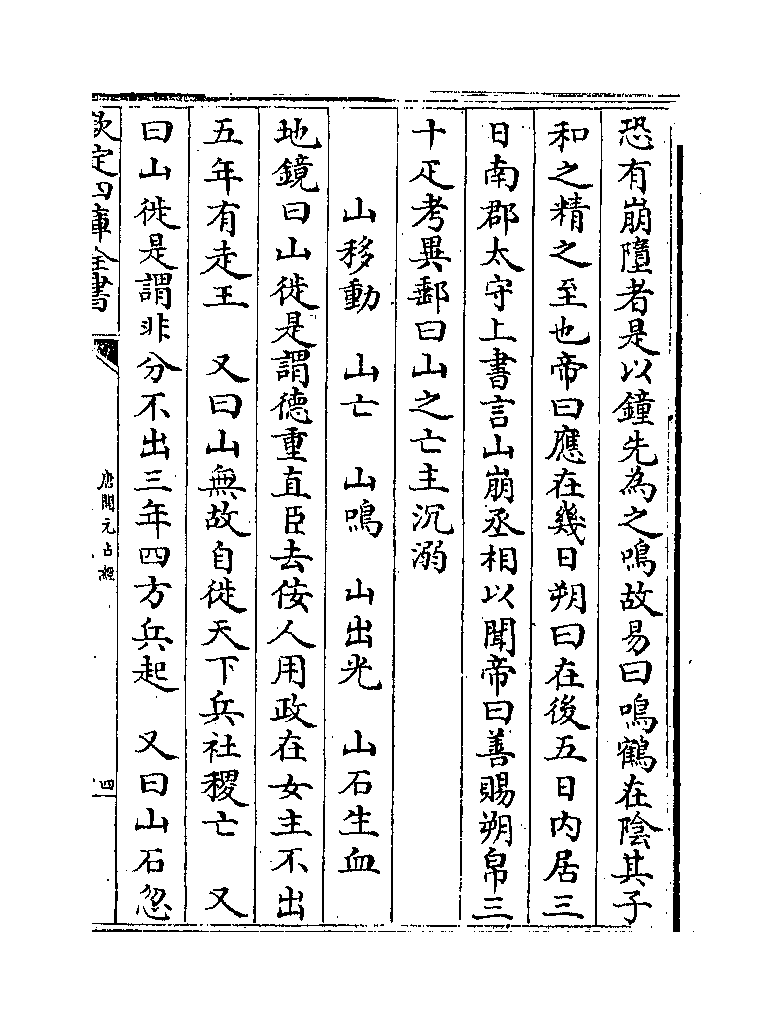 恐有崩墮者是以鐘先為之鳴故易曰鳴鶴在陰其子
和之精之至也帝曰應在幾日朔曰在後五日内居三
日南郡太守上書言山崩丞相以聞帝曰善賜朔帛三
十疋考異郵曰山之亡主沉溺
山移動　山亡　山鳴　山出光　山石生血
地鏡曰山徙是謂德重直臣去佞人用政在女主不出
五年有走王　又曰山無故自徙天下兵社稷亡　又
曰山徙是謂非分不出三年四方兵起　又曰山石忽
欽定四庫全書
唐開元占經
四